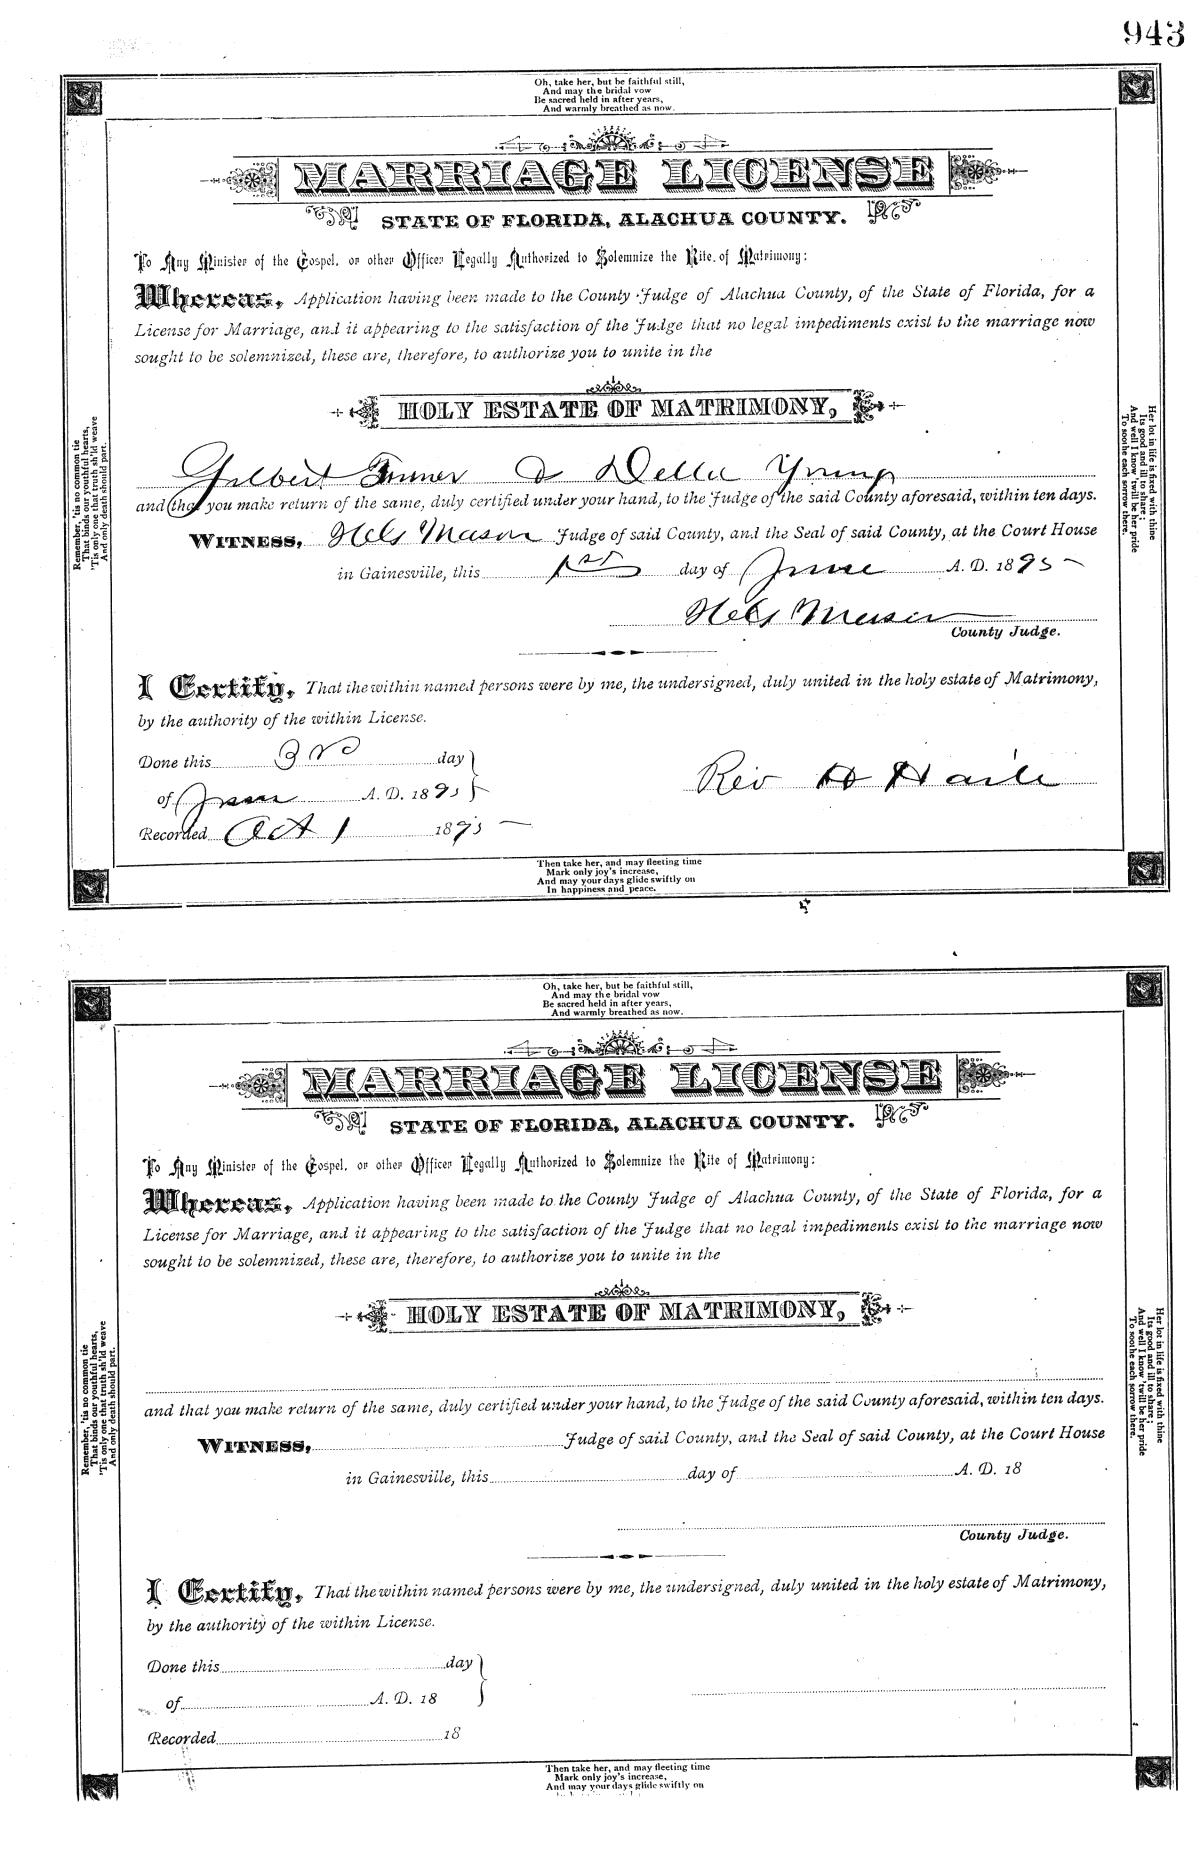 943
Oh, take her, but be faithful still,
And may the bridal vow
Be sacred held in after years,
And warmly breathed as now.
MARRIAGE LICENSE
STATE OF FLORIDA, ALACHUA COUNTY.
To Any Minister of the Gospel, or other Officer Legally Authorized to Solemnize the Rite of Matrimony:
Whereas, Application having been made to the County Judge of Alachua County, of the State of Florida, for a
License for Marriage, and it appearing to the satisfaction of the Judge that no legal impediments exist to the marriage now
sought to be solemnized, these are, therefore, to authorize you to unite in the
HOLY ESTATE OF MATRIMONY,
Gilbert & Della Young
and that you make return of the same, duly certified under your hand, to the Judge of the said County aforesaid, within ten days.
WITNESS, Mason Judge of said County, and the Seal of said County, at the Court House
in Gainesville, this 1st day of June A. D. 1895
Mason
County Judge.
I Certify, That the within named persons were by me, the undersigned, duly united in the holy estate of Matrimony,
by the authority of the within License.
Done this 3rd day
of June A. D. 1895
Rev H Haile
Recorded Oct 1 1895
Then take her, and may fleeting time
Mark only joy's increase,
And may your days glide swiftly on
In happiness and peace.
Remember, 'tis no common tie
That binds our youthful hearts,
'Tis only one that truth sh'ld weave
And only death should part.
Her lot in life is fixed with thine
Its good and ill to share;
And well I know 'twill be her pride
To soothe each sorrow there.
Oh, take her, but be faithful still,
And may the bridal vow
Be sacred held in after years,
And warmly breathed as now.
MARRIAGE LICENSE
STATE OF FLORIDA, ALACHUA COUNTY.
To Any Minister of the Gospel, or other Officer Legally Authorized to Solemnize the Rite of Matrimony:
Whereas, Application having been made to the County Judge of Alachua County, of the State of Florida, for a
License for Marriage, and it appearing to the satisfaction of the Judge that no legal impediments exist to the marriage now
sought to be solemnized, these are, therefore, to authorize you to unite in the
HOLY ESTATE OF MATRIMONY,
and that you make return of the same, duly certified under your hand, to the Judge of the said County aforesaid, within ten days.
WITNESS, Judge of said County, and the Seal of said County, at the Court House
in Gainesville, this day of A. D. 18
County Judge.
I Certify, That the within named persons were by me, the undersigned, duly united in the holy estate of Matrimony,
by the authority of the within License.
Done this day
of A. D. 18
Recorded 18
Then take her, and may fleeting time
Mark only joy's increase,
And may your days glide swiftly on
Remember, 'tis no common tie
That binds our youthful hearts,
'Tis only one that truth sh'ld weave
And only death should part.
Her lot in life is fixed with thine
Its good and ill to share;
And well I know 'twill be her pride
To soothe each sorrow there.